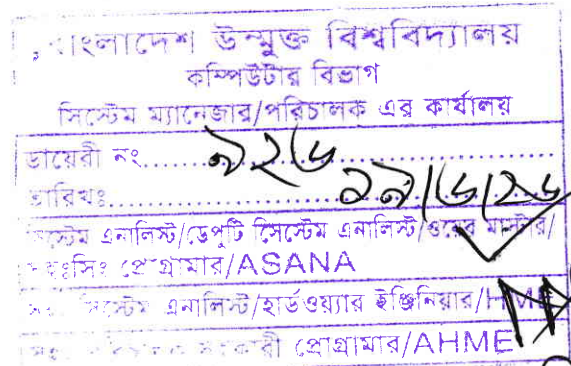 বাংলাদেশ উন্মুক্ত বিশ্ববিদ্যালয়
কম্পিউটার বিভাগ
সিস্টেম ম্যানেজার/পরিচালক এর কার্যালয়
ডায়েরী নং......৯২৬......
তারিখঃ......১৯/৬/২৬
সিস্টেম এনালিস্ট/ডেপুটি সিস্টেম এনালিস্ট/ওয়েব মাস্টার/
সহঃসিঃ প্রোগ্রামার/ASANA
সিস্টেম এনালিস্ট/হার্ডওয়্যার ইঞ্জিনিয়ার/HME
প্রোগ্রামার/AHME